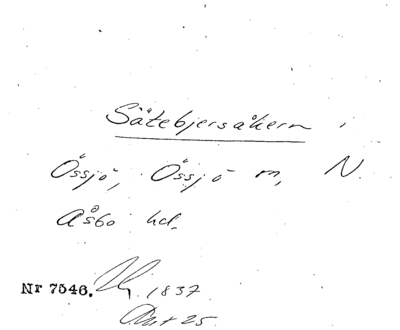 Sätebjersåkern i
Össjö, Össjö m, N.
Åsbo hd.
Nr 7546. 1837
Akt 25